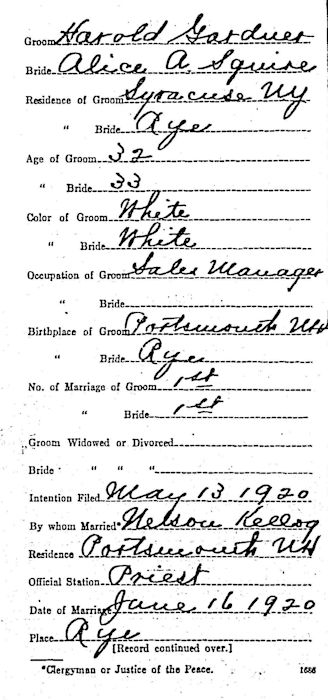 Groom Harold Gardner
Bride Alice A. Squire
Residence of Groom Syracuse NY
" Bride Rye
Age of Groom 32
" Bride 33
Color of Groom White
" Bride White
Occupation of Groom Sales Manager
" Bride
Birthplace of Groom Portsmouth NH
" Bride Rye
No. of Marriage of Groom 1st
" Bride 1st
Groom Widowed or Divorced
Bride " " "
Intention Filed May 13 1920
By whom Married* Nelson Kellog
Residence Portsmouth NH
Official Station Priest
Date of Marriage June 16 1920
Place Rye
[Record continued over.]
*Clergyman or Justice of the Peace. 1686